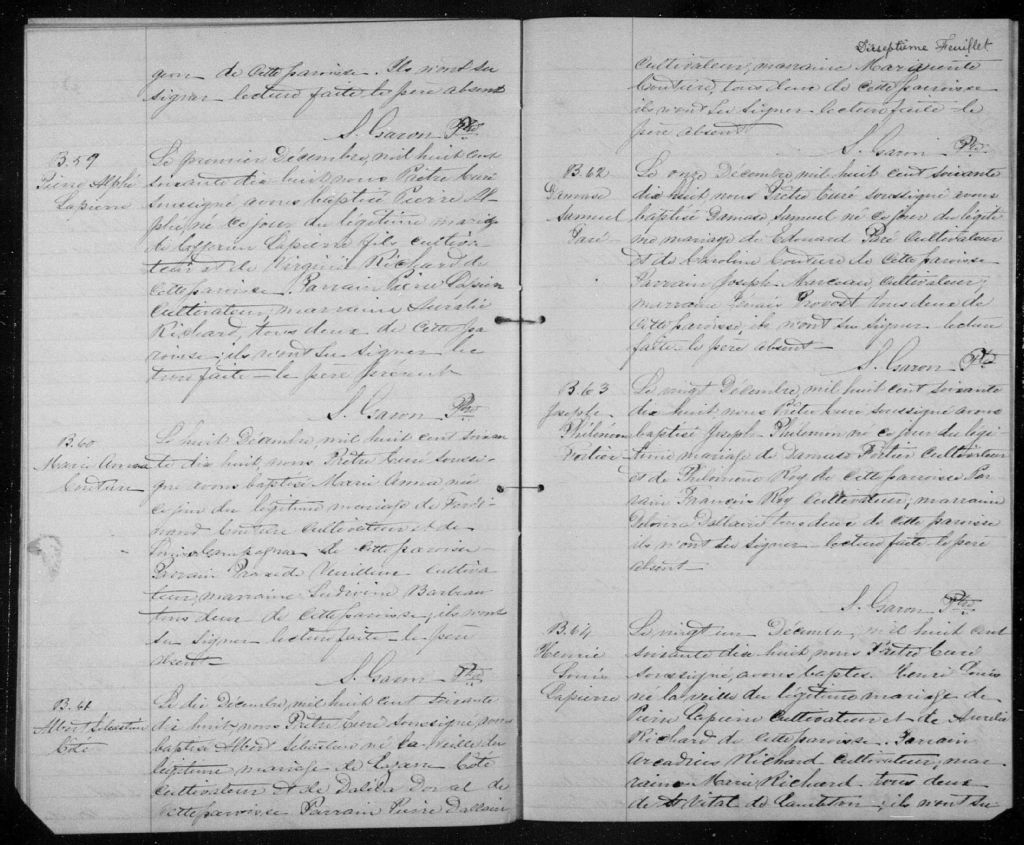 geon de cette paroisse. Ils n'ont su
signer lecture faite le père absent
S. Garon Ptre
B.59
Pierre Alphé
Lapierre
Le premier Décembre, mil huit cent
soixante dix huit, nous Prêtre Curé
soussigné avons baptisé Pierre Al-
phé né ce jour du légitime mariage
de Cyprien Lapierre fils cultiva-
teur et de Virginie Richard de
cette paroisse. Parrain Pierre
cultivateur, marraine Aurélie
Richard, tous deux de cette pa-
roisse; ils n'ont su signer lec
ture faite le père présent
S. Garon Ptre
B.60
Marie Anna
Couture
Le huit Décembre, mil huit cent soixan
te dix huit, nous Prêtre Curé soussi-
gné avons baptisé Marie Anna née
ce jour du légitime mariage de Ferdi
nand Couture cultivateur et de
Louise Campagna de cette paroisse
Parrain Praxède Veuilleux cultiva
teur, marraine Ludivine Barbeau
tous deux de cette paroisse; ils n'ont
su signer lecture faite le père
absent
S. Garon Ptre
B.61
Albert Sébastien
Côté
Le dix Décembre, mil huit cent soixante
dix huit, nous Prêtre Curé soussigné avons
baptisé Albert Sébastien né la veille du
légitime mariage de Côté
cultivateur et de Dalila Doval de
cette paroisse Parrain Pierre Dallain
Dixseptième Feuillet
cultivateur, marraine Marguerite
Couture, tous deux de cette paroisse
ils n'ont su signer lecture faite le
père absent
S. Garon Ptre
B.62
Damase
Samuel
Paré
Le onze Décembre, mil huit cent soixante
dix huit nous Prêtre Curé soussigné avons
baptisé Damase Samuel né ce jour du légiti
me mariage de Edouard Paré cultivateur
et de Caroline Couture de cette paroisse
Parrain Joseph Marceau, cultivateur,
marraine Zénaïs Provost tous deux de
cette paroisse, ils n'ont su signer lecture
faite le père absent
S. Garon Ptre
B.63
Joseph
Philémon
Fortier
Le vingt Décembre, mil huit cent soixante
dix huit nous Prêtre Curé soussigné avons
baptisé Joseph Philémon né ce jour du légi
time mariage de Damase Fortier cultivateur
et de Philomène Roy de cette paroisse Par
rain François Roy cultivateur, marraine
Dallaire tous deux de cette paroisse
ils n'ont su signer lecture faite le père
absent
S. Garon Ptre
B.64
Henri
Louis
Lapierre
Le vingt un Décembre, mil huit cent
soixante dix huit, nous Prêtre Curé
soussigné, avons baptisé Henri Louis
né la veille du légitime mariage de
Pierre Lapierre cultivateur et de Aurélie
Richard de cette paroisse. Parrain
Arcadius Richard cultivateur, mar
raine Marie Richard tous deux
de St Vital de Lambton; ils n'ont su